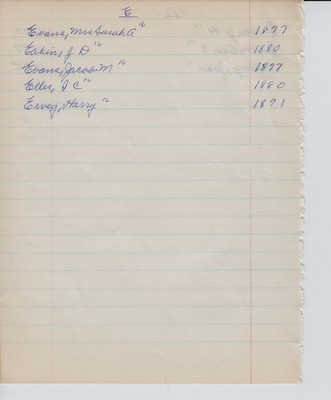 E
Evans, Mrs Sarah A " 1877
Eakin, J D " 1880
Evans, Jacob M " 1877
Eller, I C " 1880
Ervey, Harry " 1871